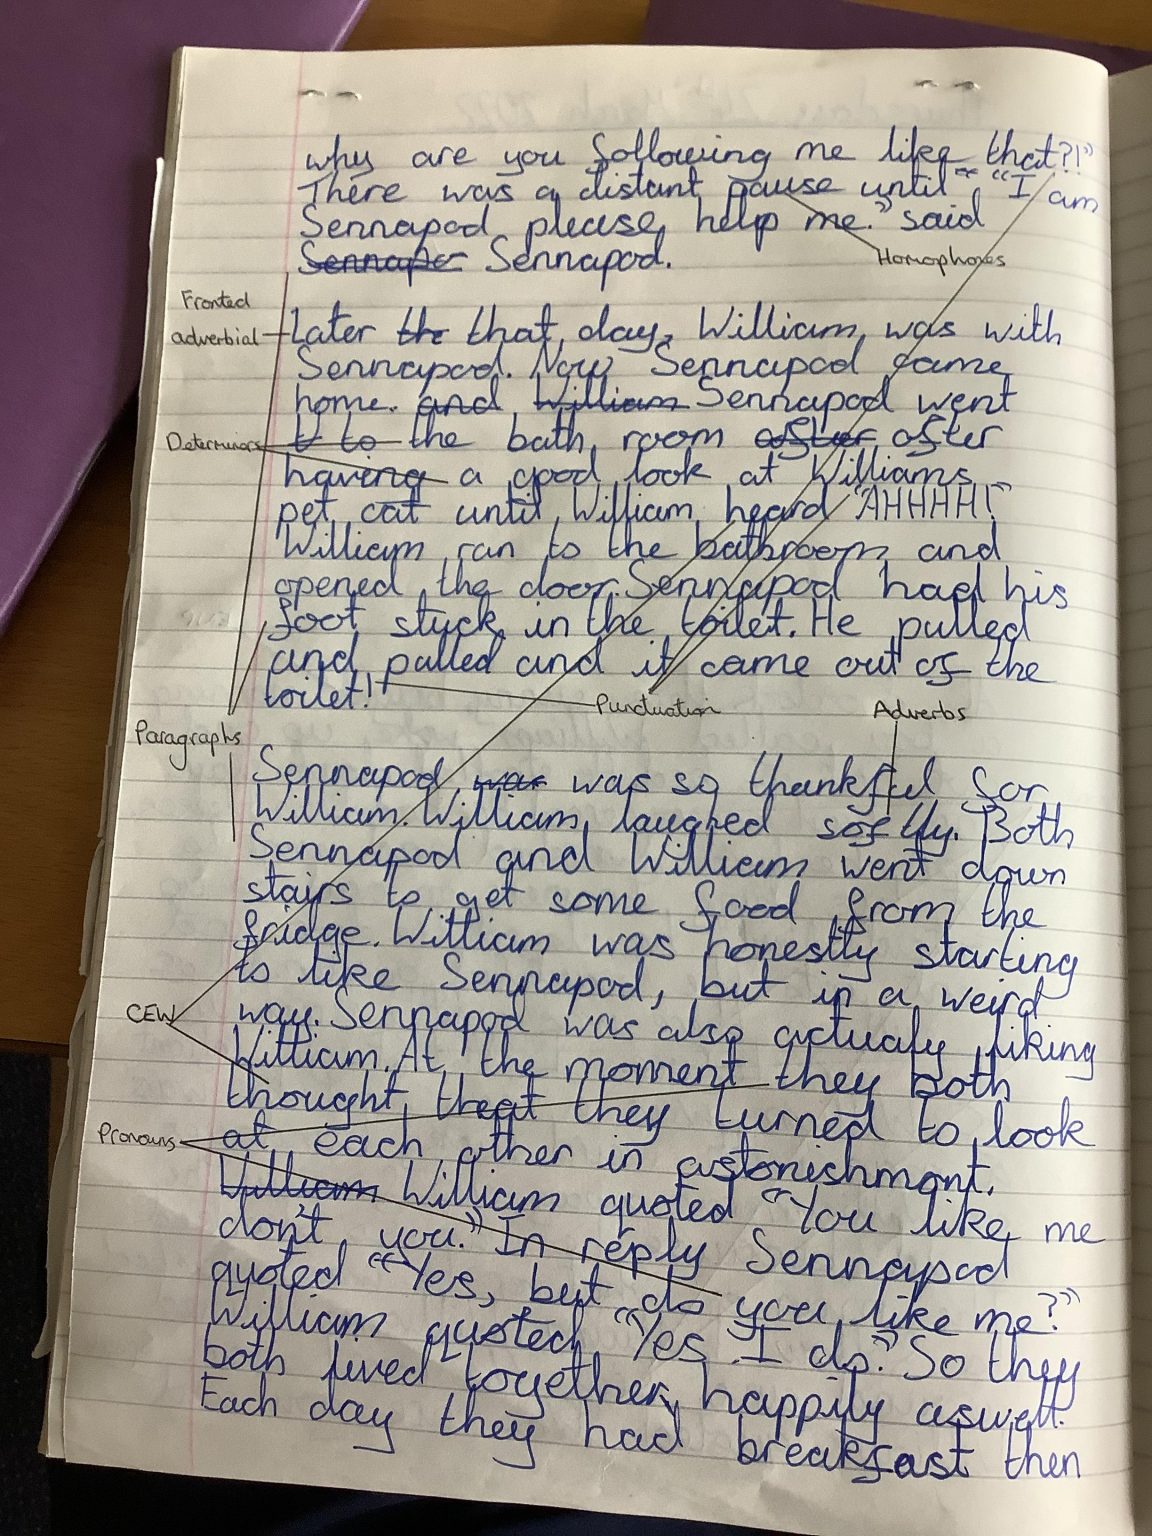 why are you following me like that?!"
There was a distant pause until "I am
Sennapod please help me." said
Sennaper Sennapod.
Homophones
Fronted
adverbial
Later the that day, William was with
Sennapod. Now Sennapod came
home. and William Sennapod went
Determiners
t to the bath room after after
having a good look at Williams
pet cat until William heard "AHHHH!"
William ran to the bathroom and
opened the door. Sennapod had his
foot stuck in the toilet. He pulled
and pulled and it came out of the
toilet!
Punctuation
Adverbs
Paragraphs
Sennapod was was so thankful for
William. William laughed softly. Both
Sennapod and William went down
stairs to get some food from the
fridge. William was honestly starting
to like Sennapod, but in a weird
CEW
way. Sennapod was also actualy liking
William. At the moment they both
thought that they turned to look
Pronouns
at each other in astonishment.
William William quoted "You like me
don't you." In reply Sennapod
quoted "Yes, but do you like me?"
William quoted "Yes I do." So they
both lived together happily aswell.
Each day they had breakfast then